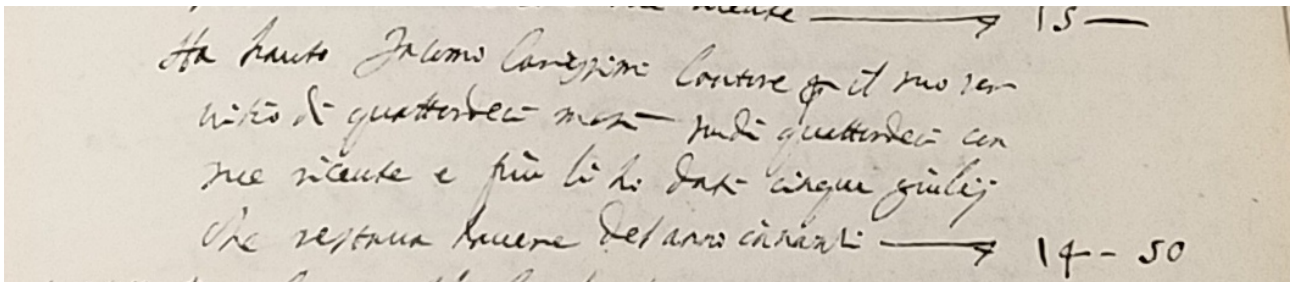 ricente 15
Ha hauto Jacomo Carissimi Cantore p il suo ser
vitio di quattordeci mesi scudi quattordeci con
sue riceute e più li hò dati cinque giulij
che restaua hauere del anno innanti 14 - 50